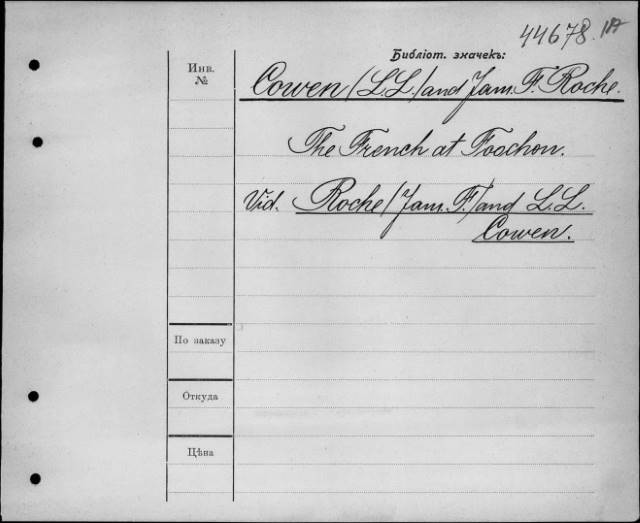 44678. 1А
Библіот. значекъ:
Инв.
№
Cowen (L.L.) and Jam. F. Roche.
The French at Foochon.
Vid. Roche (Jam. F.) and L.L.
Cowen.
По заказу
Откуда
Цѣна